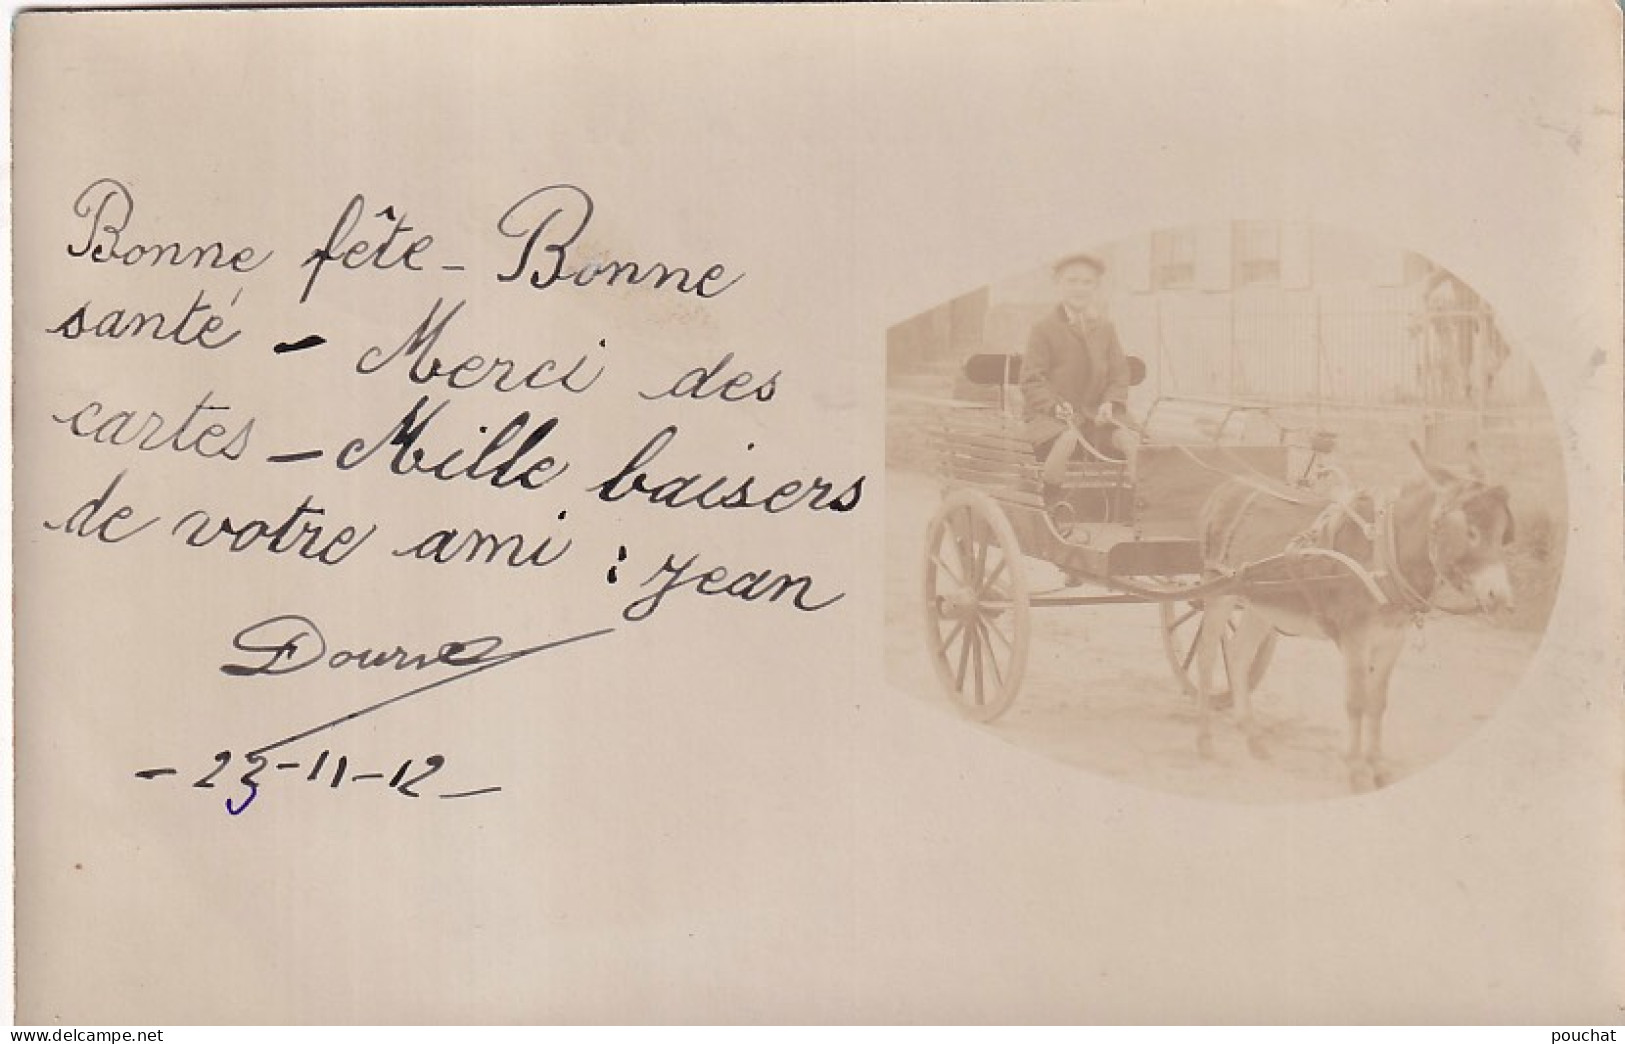 Bonne fête - Bonne
santé - Merci des
cartes - Mille baisers
de votre ami : Jean
- 23-11-12 -
www.delcampe.net
pouchat